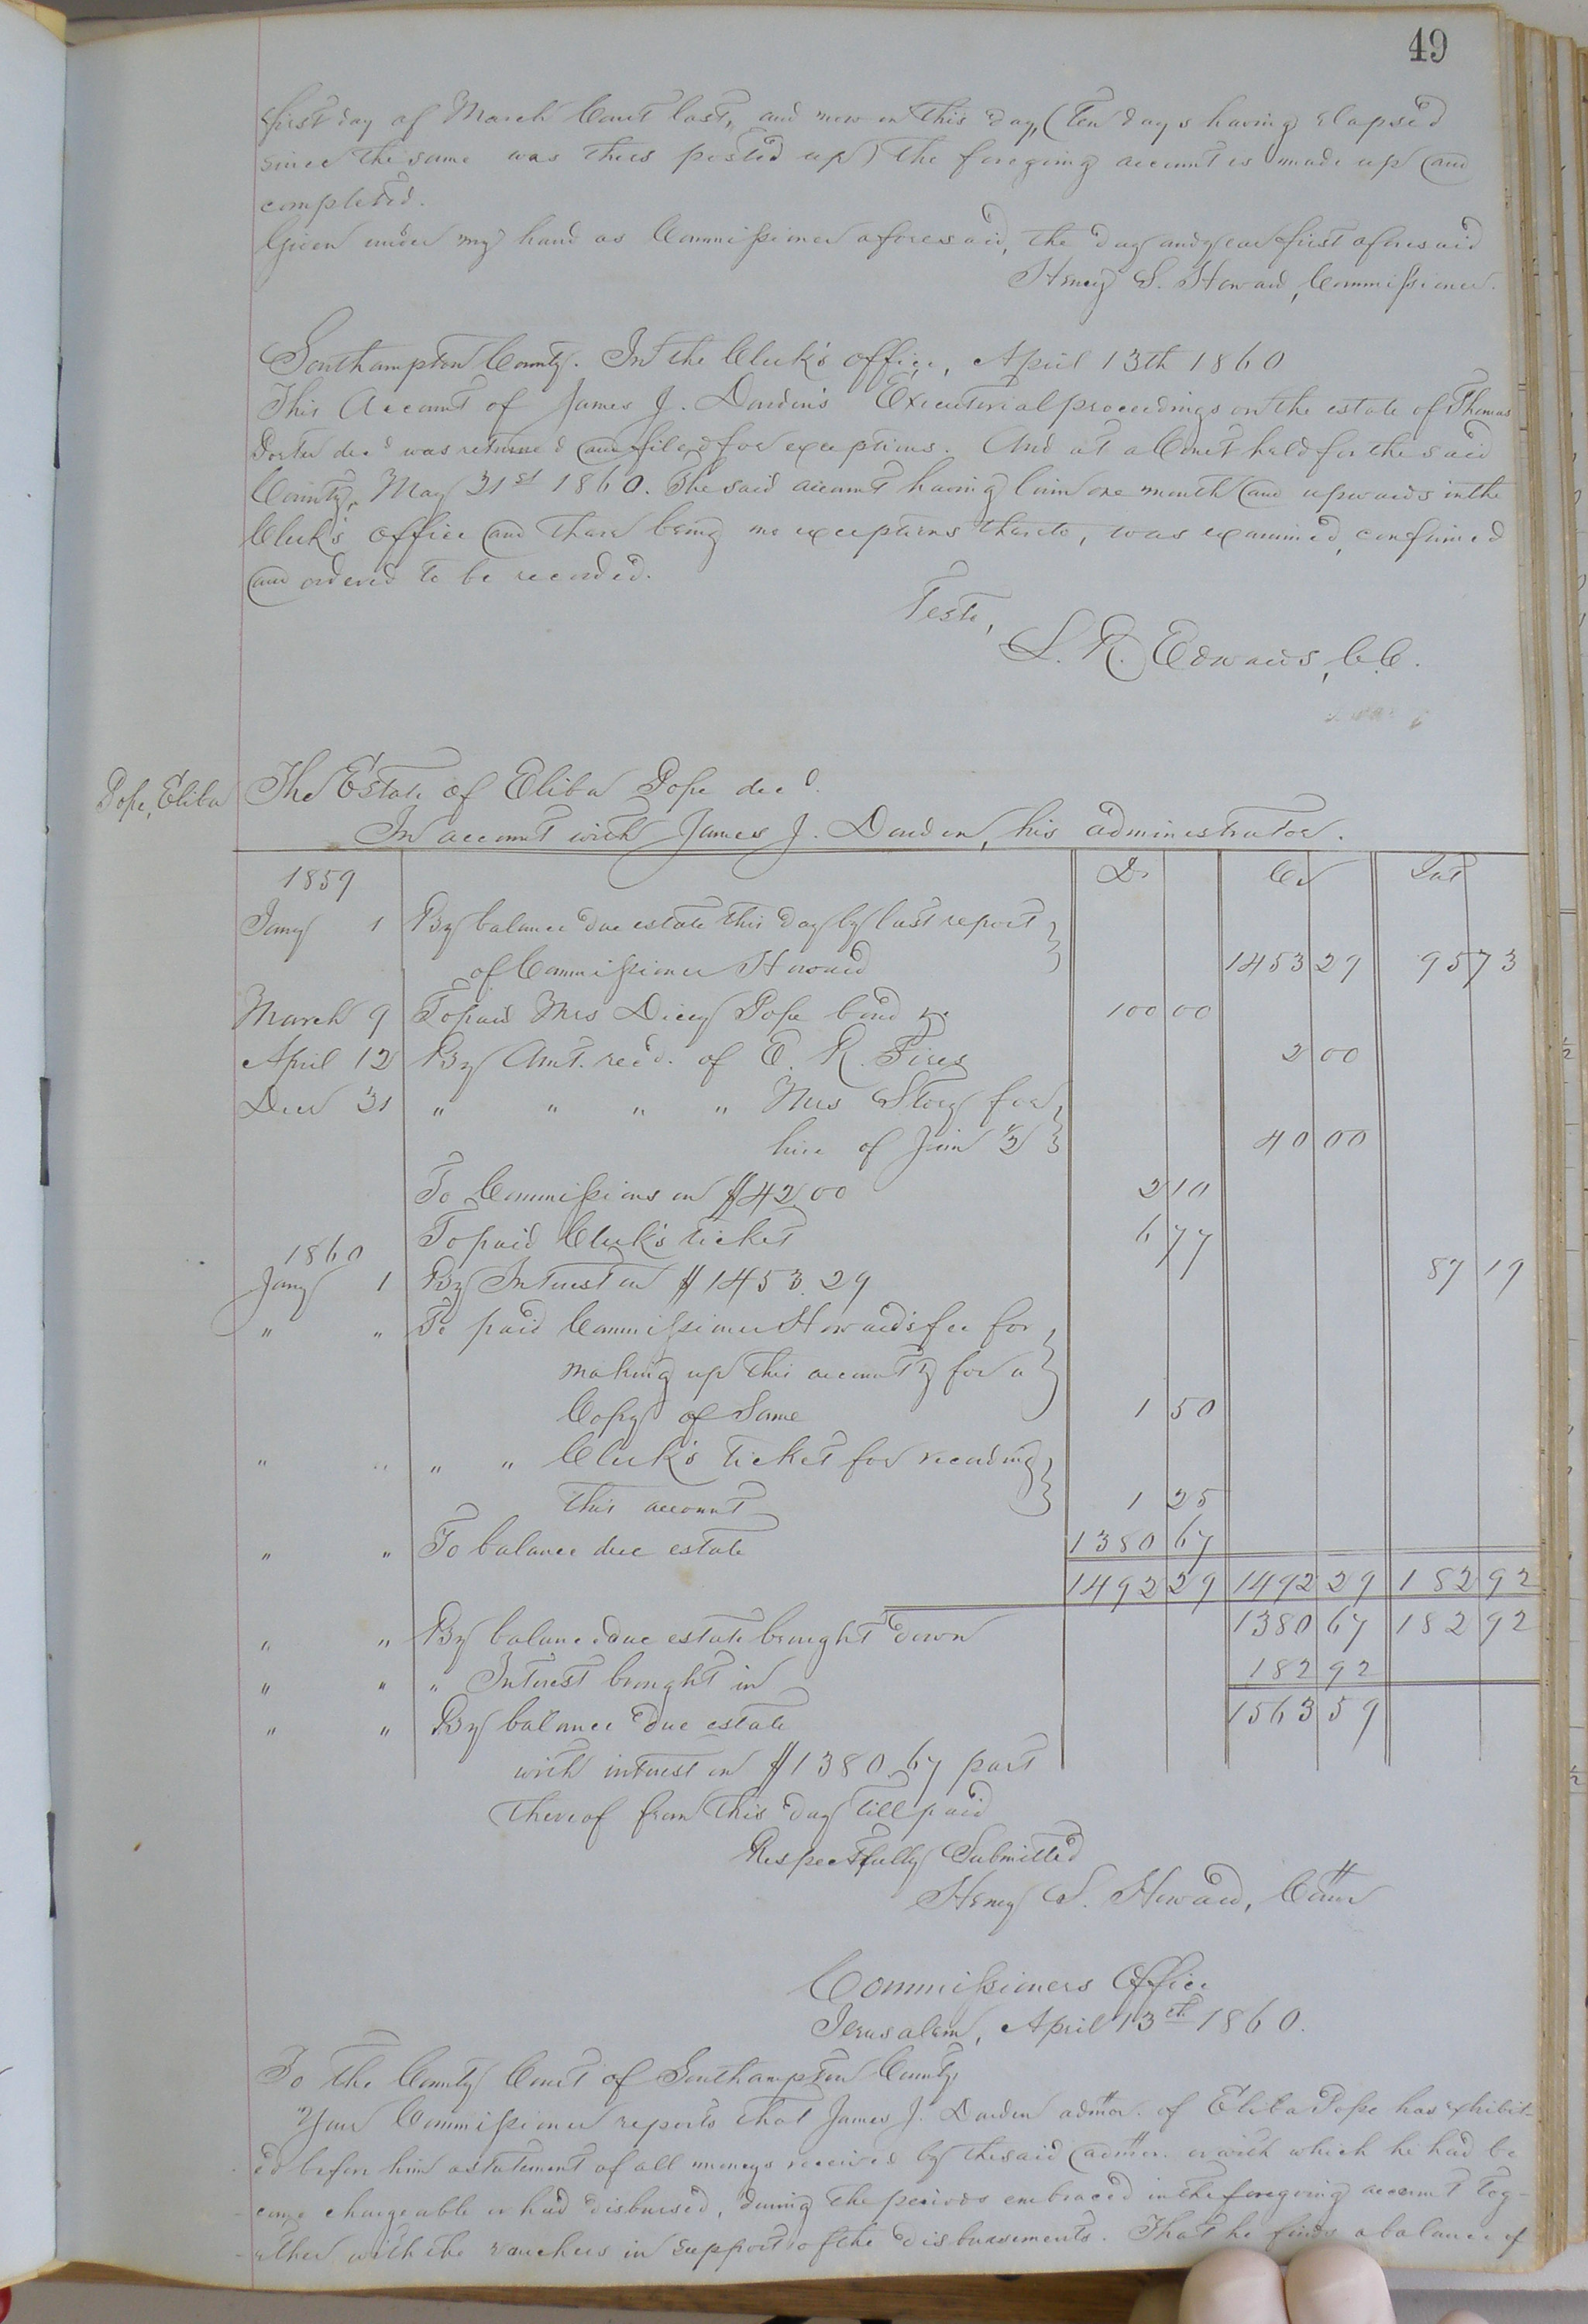 49
first day of March Court last, and now on this day, (ten days having elapsed
since the same was thus posted up) the foregoing account is made up and
completed.
Given under my hand as Commissioner aforesaid, the day and year first aforesaid
Henry S. Howard, Commissioner.
Southampton County. In the Clerk's office, April 13th 1860
This Account of James J. Darden's Executorial proceedings on the estate of Thomas
Porter decd was returned and filed for exceptions. And at a Court held for the said
County, May 21st 1860. The said account having lain one month and upwards in the
Clerk's office and there being no exceptions thereto, was examined, confirmed
and ordered to be recorded.
Teste,
L. R. Edwards, C.C.
Pope, Eliba
The Estate of Eliba Pope decd.
In account with James J. Darden, his administrator.
1859 Dr Cr Int
Jany 1 By balance due estate this day by last report
of Commissioner Howard 1453 29 95 73
March 9 To paid Mrs Dicey Pope bond &c 100 00
April 12 By Amt. recd. of E. R. Fires 2 00
Decr 31 " " " " Mrs Story for
hire of Jim 1/2 40 00
To Commissions on $42.00 2 10
To paid Clerk's ticket 6 77
1860
Jany 1 By Interest on $1453.29 87 19
" " To paid Commissioner Howard's fee for
making up this account & for a
Copy of Same 1 50
" " " " Clerk's ticket for recording
this account 1 25
" " To balance due estate 1380 67
1492 29 1492 29 182 92
" " By balance due estate brought down 1380 67 182 92
" " " Interest brought in 182 92
" " By balance due estate 1563 59
with interest on $1380.67 part
thereof from this day till paid
Respectfully Submitted
Henry S. Howard, Comr
Commissioners Office
Jerusalem, April 13th 1860.
To the County Court of Southampton County,
Your Commissioner reports that James J. Darden admor. of Eliba Pope has exhibit-
ed before him a statement of all moneys received by the said admor. or with which he had be
come chargeable or had disbursed, during the periods embraced in the foregoing account tog-
ether with the vouchers in support of the disbursements. That he finds a balance of